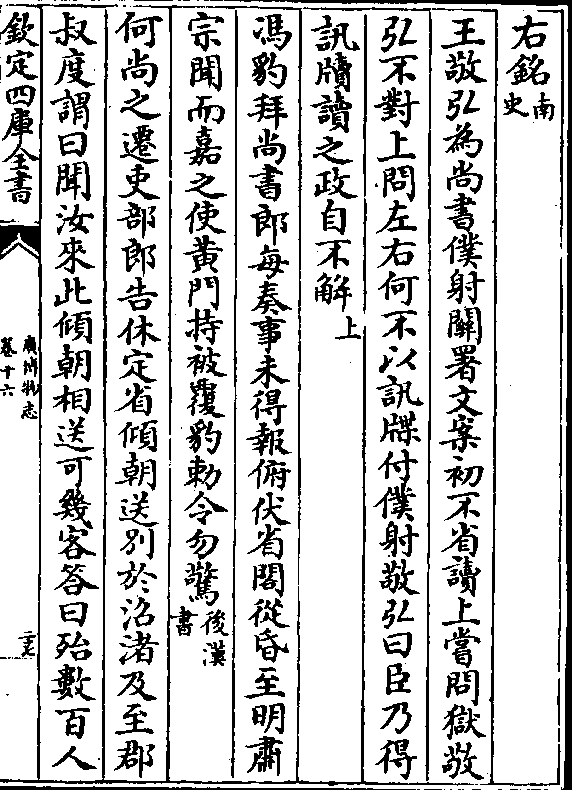 右銘南史
王敬弘為尚書僕射關署文案初不省讀上嘗問獄敬
弘不對上問左右何不以訊牒付僕射敬弘曰臣乃得
訊牘讀之政自不解上
馮豹拜尚書郎每奏事未得報俯伏省閣從昏至明肅
宗聞而嘉之使黃門持被覆豹勅令勿驚後漢書
何尚之遷吏部郎告休定省傾朝送別於冶渚及至郡
叔度謂曰聞汝來此傾朝相送可幾客答曰殆數百人
欽定四庫全書
廣博物志
卷十六